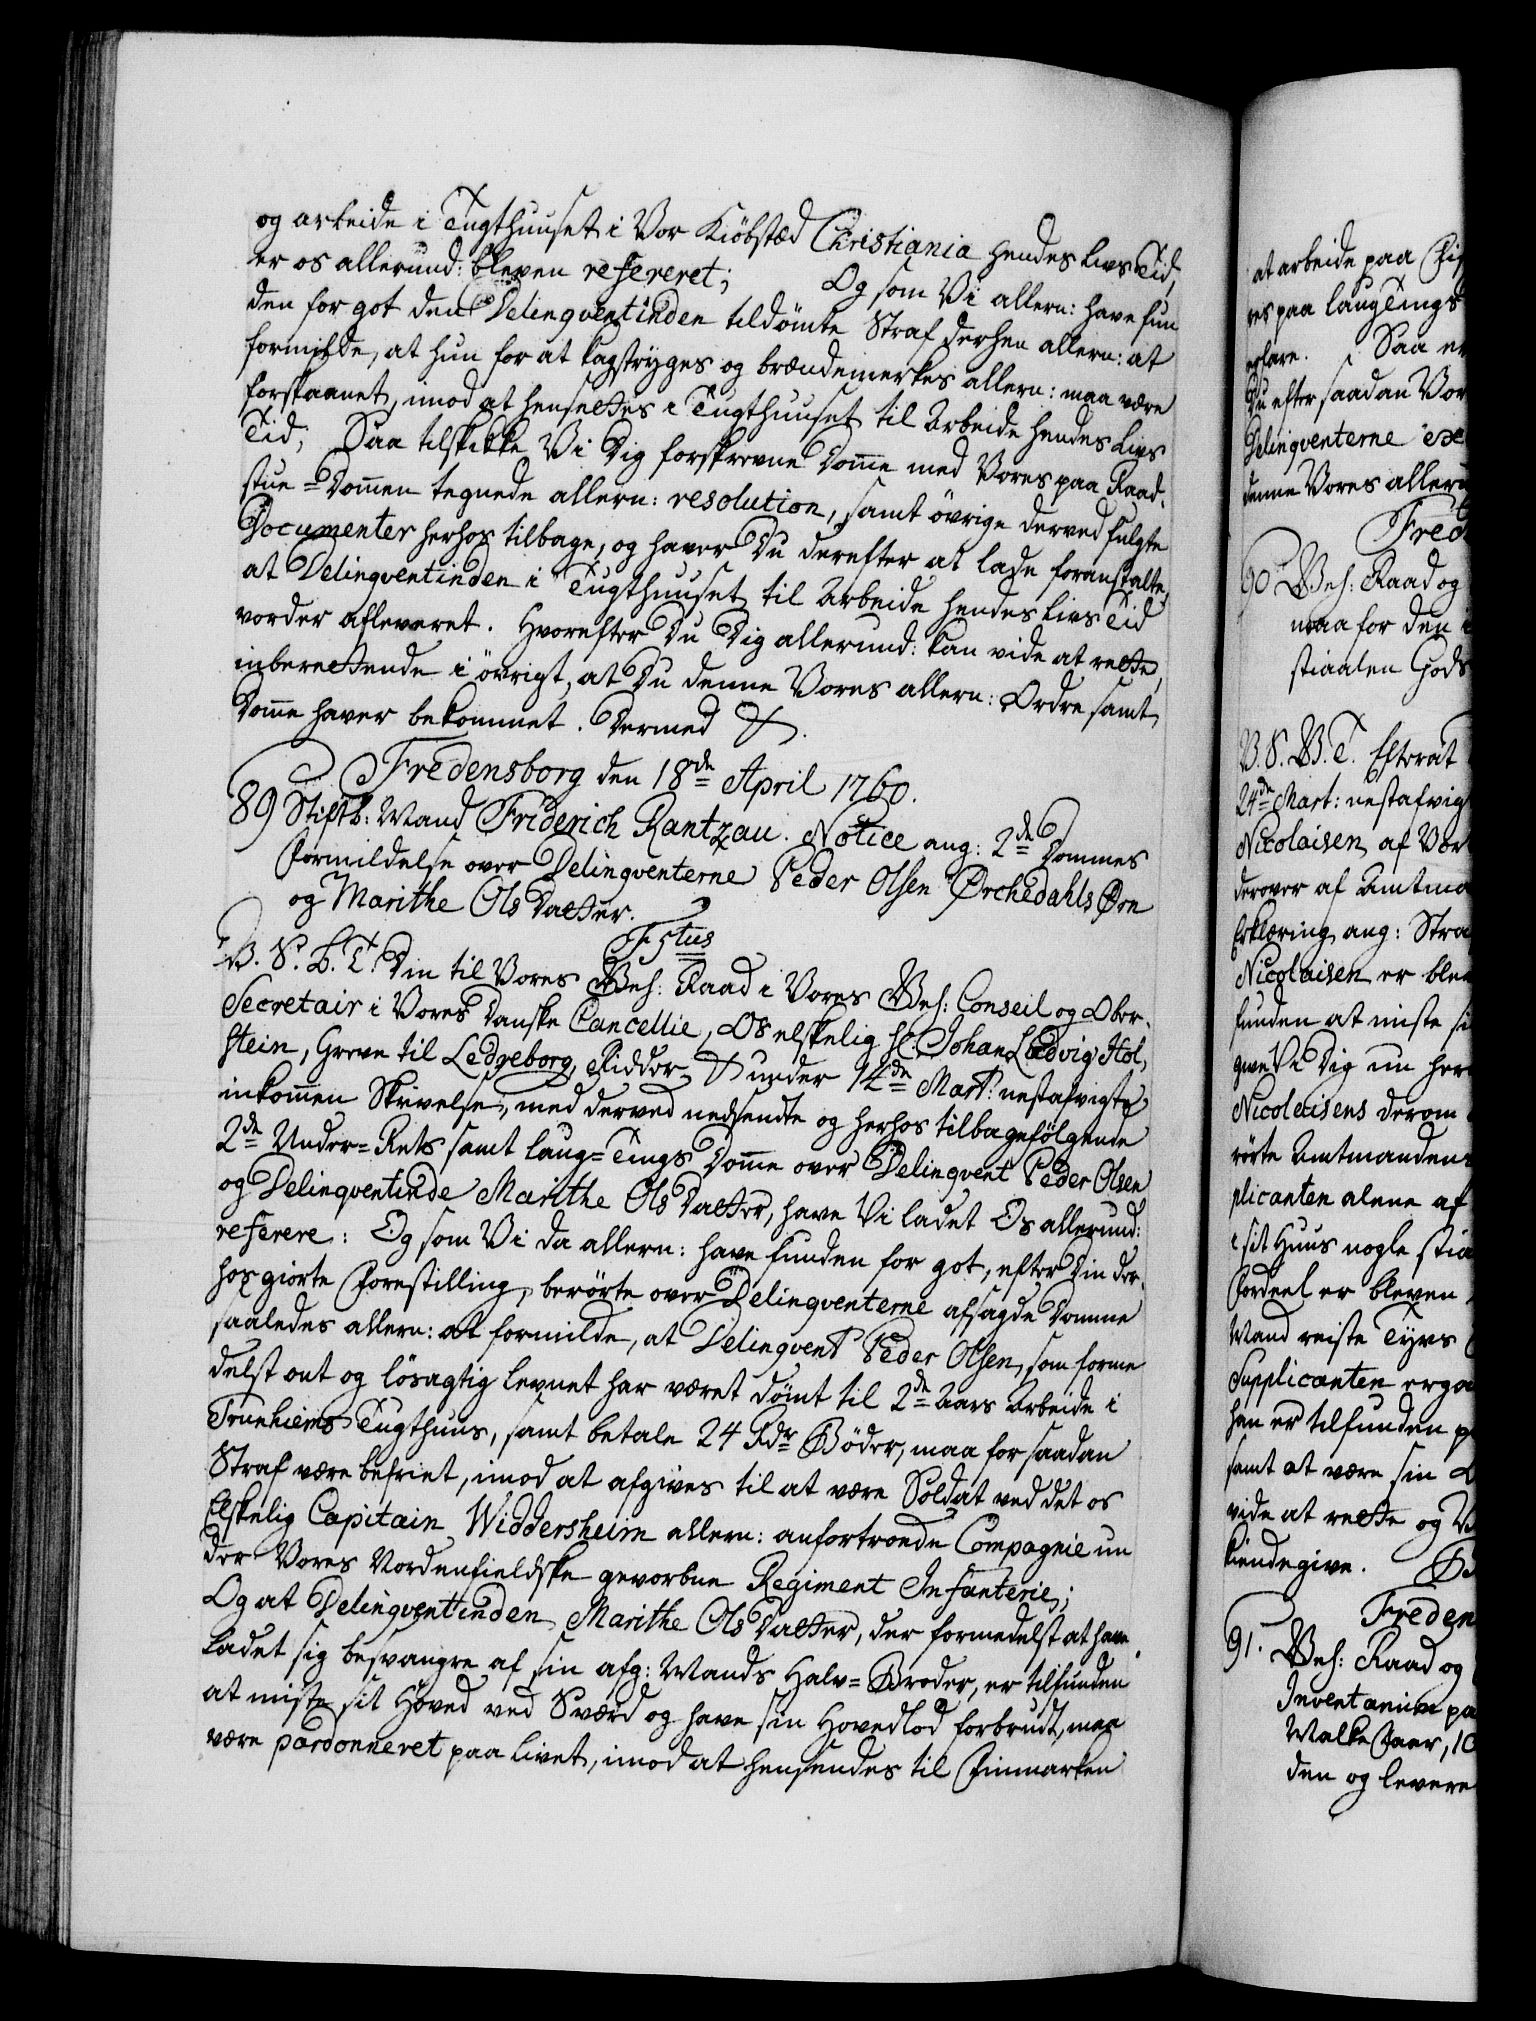 og arbeide i Tugthuuset i Vor Kiöbstæd Christiania hendes Livs Tid,
er os allerund: bleven refereret; Og som Vi allern: have fun
den for got den Delinqventinden tildömte Straf derhen allern: at
formilde, at hun for at kagstryges og brændemerkes allern: maa være
forskaanet, imod at hensettes i Tugthuuset til Arbeide hendes Livs
Tid; Saa tilskikke Vi Dig forskrevne Domme med Vores paa Raad-
stue-Dommen tegnede allern: resolution, samt övrige derved fulgte
Documenter herhos tilbage, og haver Du derefter at lade foranstalte,
at Delinqventinden i Tugthuuset til Arbeide hendes Livs Tid
vorder afleveret. Hvorefter Du Dig allerund: kan vide at rette,
inberettende i övrigt, at Du denne Vores allern: Ordre samt
Domme haver bekommet. Dermed &.
Fredensborg den 18de April 1760.
89 Stiftb: Mand Friderich Rantzau. Notice ang: 2de Dommes
Formildelse over Delinqventerne Peder Olsen Orchedahls Öre
og Marithe Ols Datter.
F 5tus
V. S. G. T. Din til Vores Geh: Raad i Vores Geh: Conseil og Ober-
Secretair i Vores Danske Cancellie, Os elskelig Hr. Johan Ludvig Hol,
stein, Greve til Ledreborg, Ridder & under 14de Mart: nestafvigte
inkommen Skrivelse, med derved nedsendte og herhos tilbagefölgende
2de Under-Rets samt Laug-Tings Domme over Delinqvent Peder Olsen
og Delinqventinde Marithe Ols Datter, have Vi ladet Os allerund:
referere: Og som Vi da allern: have funden for got, efter Din der-
hos giorte Forestilling, berörte over Delinqventerne afsagde Domme
saaledes allern: at formilde, at Delinqvent Peder Olsen, som forme
delst ont og lösagtig Levnet har været dömt til 2de Aars Arbeide i
Trunhiems Tugthuus, samt betale 24 Rdr Böder, maa for saadan
Straf være befriet, imod at afgives til at være Soldat ved det os
Elskelig Capitain Widdersheim allern: anfortroede Compagnie un
der Vores Nordenfieldske gevorbne Regiment Infanterie;
Og at Delinqventinden Marithe Ols Datter, der formedelst at have
ladet sig besvangre af sin afg: Mands Halv-Broder, er tilfunden
at miste sit Hoved ved Sværd og have sin Hovedlod forbrudt, maa
være pardonneret paa Livet, imod at hensendes til Finmarken
at arbeide paa
res paa Laugtings
Saa er
Du efter saadan Vor
Delinqventerne
denne Vores aller
Fred
90 Geh: Raad og
maa for den
V. S. G. T. Efterat
24de Mart: nestafvig
Nicolaisen, af Vær
derover af Amtma
Erklæring ang: Stra
Nicolaisen er ble
funden at miste si
give Vi Dig nu her
Nicolaisens derom
rörte Amtmanden
plicanten alene af
i sit Huus nogle
Fordeel er bleven
Mand reiste Tyvs
Supplicanten
han er tilfunden
samt at være sin
vide at rette og
kiendegive.
Freden
91. Geh: Raad og
Inventarium pa
den og levere